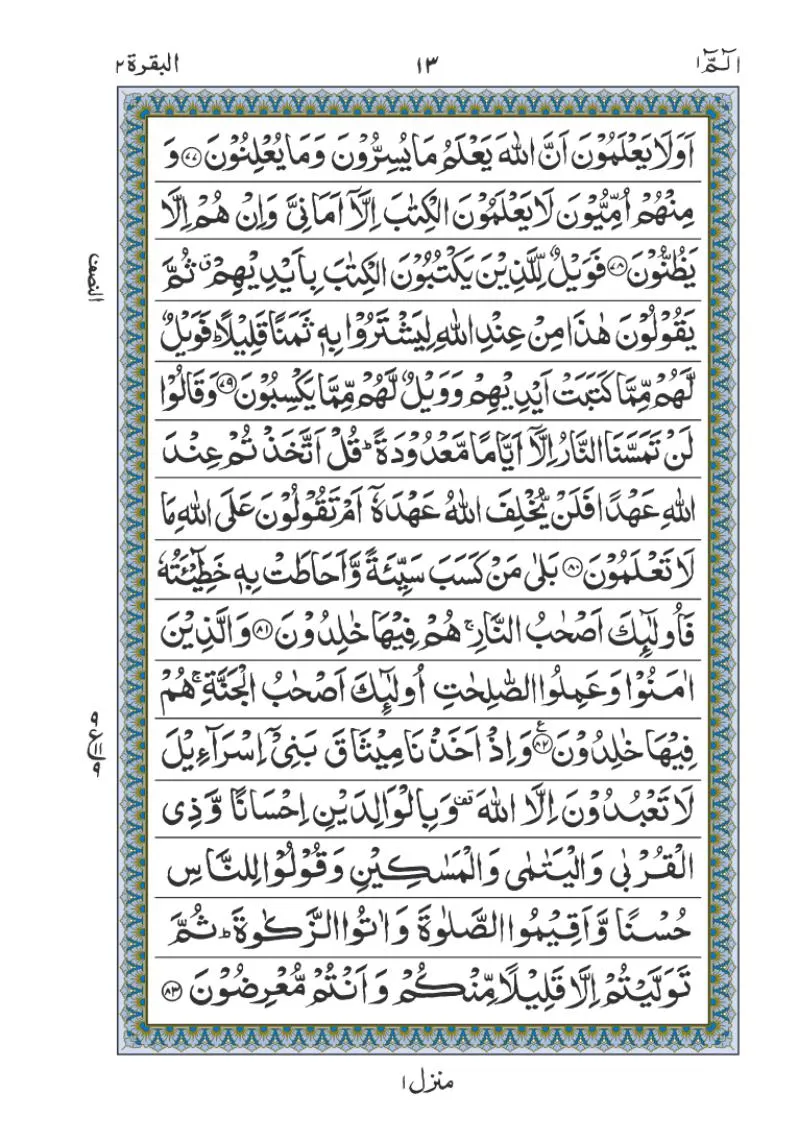 الٓمّٓ ۱
۱۳
البقرة ۲
اَوَلَا یَعْلَمُوْنَ اَنَّ اللّٰهَ یَعْلَمُ مَا یُسِرُّوْنَ وَ مَا یُعْلِنُوْنَ ﴿۷۷﴾ وَ
مِنْهُمْ اُمِّیُّوْنَ لَا یَعْلَمُوْنَ الْكِتٰبَ اِلَّاۤ اَمَانِیَّ وَ اِنْ هُمْ اِلَّا
یَظُنُّوْنَ ﴿۷۸﴾ فَوَیْلٌ لِّلَّذِیْنَ یَكْتُبُوْنَ الْكِتٰبَ بِاَیْدِیْهِمْ ۗ ثُمَّ
یَقُوْلُوْنَ هٰذَا مِنْ عِنْدِ اللّٰهِ لِیَشْتَرُوْا بِهٖ ثَمَنًا قَلِیْلًا ؕ فَوَیْلٌ
لَّهُمْ مِّمَّا كَتَبَتْ اَیْدِیْهِمْ وَ وَیْلٌ لَّهُمْ مِّمَّا یَكْسِبُوْنَ ﴿۷۹﴾ وَ قَالُوْا
لَنْ تَمَسَّنَا النَّارُ اِلَّاۤ اَیَّامًا مَّعْدُوْدَةً ؕ قُلْ اَتَّخَذْتُمْ عِنْدَ
اللّٰهِ عَهْدًا فَلَنْ یُّخْلِفَ اللّٰهُ عَهْدَهٗۤ اَمْ تَقُوْلُوْنَ عَلَى اللّٰهِ مَا
لَا تَعْلَمُوْنَ ﴿۸۰﴾ بَلٰى مَنْ كَسَبَ سَیِّئَةً وَّ اَحَاطَتْ بِهٖ خَطِیْٓــَٔتُهٗ
فَاُولٰٓىِٕكَ اَصْحٰبُ النَّارِ ۚ هُمْ فِیْهَا خٰلِدُوْنَ ﴿۸۱﴾ وَ الَّذِیْنَ
اٰمَنُوْا وَ عَمِلُوا الصّٰلِحٰتِ اُولٰٓىِٕكَ اَصْحٰبُ الْجَنَّةِ ۚ هُمْ
فِیْهَا خٰلِدُوْنَ ﴿۸۲﴾ع وَ اِذْ اَخَذْنَا مِیْثَاقَ بَنِیْۤ اِسْرَآءِیْلَ
لَا تَعْبُدُوْنَ اِلَّا اللّٰهَ قف وَ بِالْوَالِدَیْنِ اِحْسَانًا وَّ ذِی
الْقُرْبٰى وَ الْیَتٰمٰى وَ الْمَسٰكِیْنِ وَ قُوْلُوْا لِلنَّاسِ
حُسْنًا وَّ اَقِیْمُوا الصَّلٰوةَ وَ اٰتُوا الزَّكٰوةَ ؕ ثُمَّ
تَوَلَّیْتُمْ اِلَّا قَلِیْلًا مِّنْكُمْ وَ اَنْتُمْ مُّعْرِضُوْنَ ﴿۸۳﴾
النصف
منزل ۱